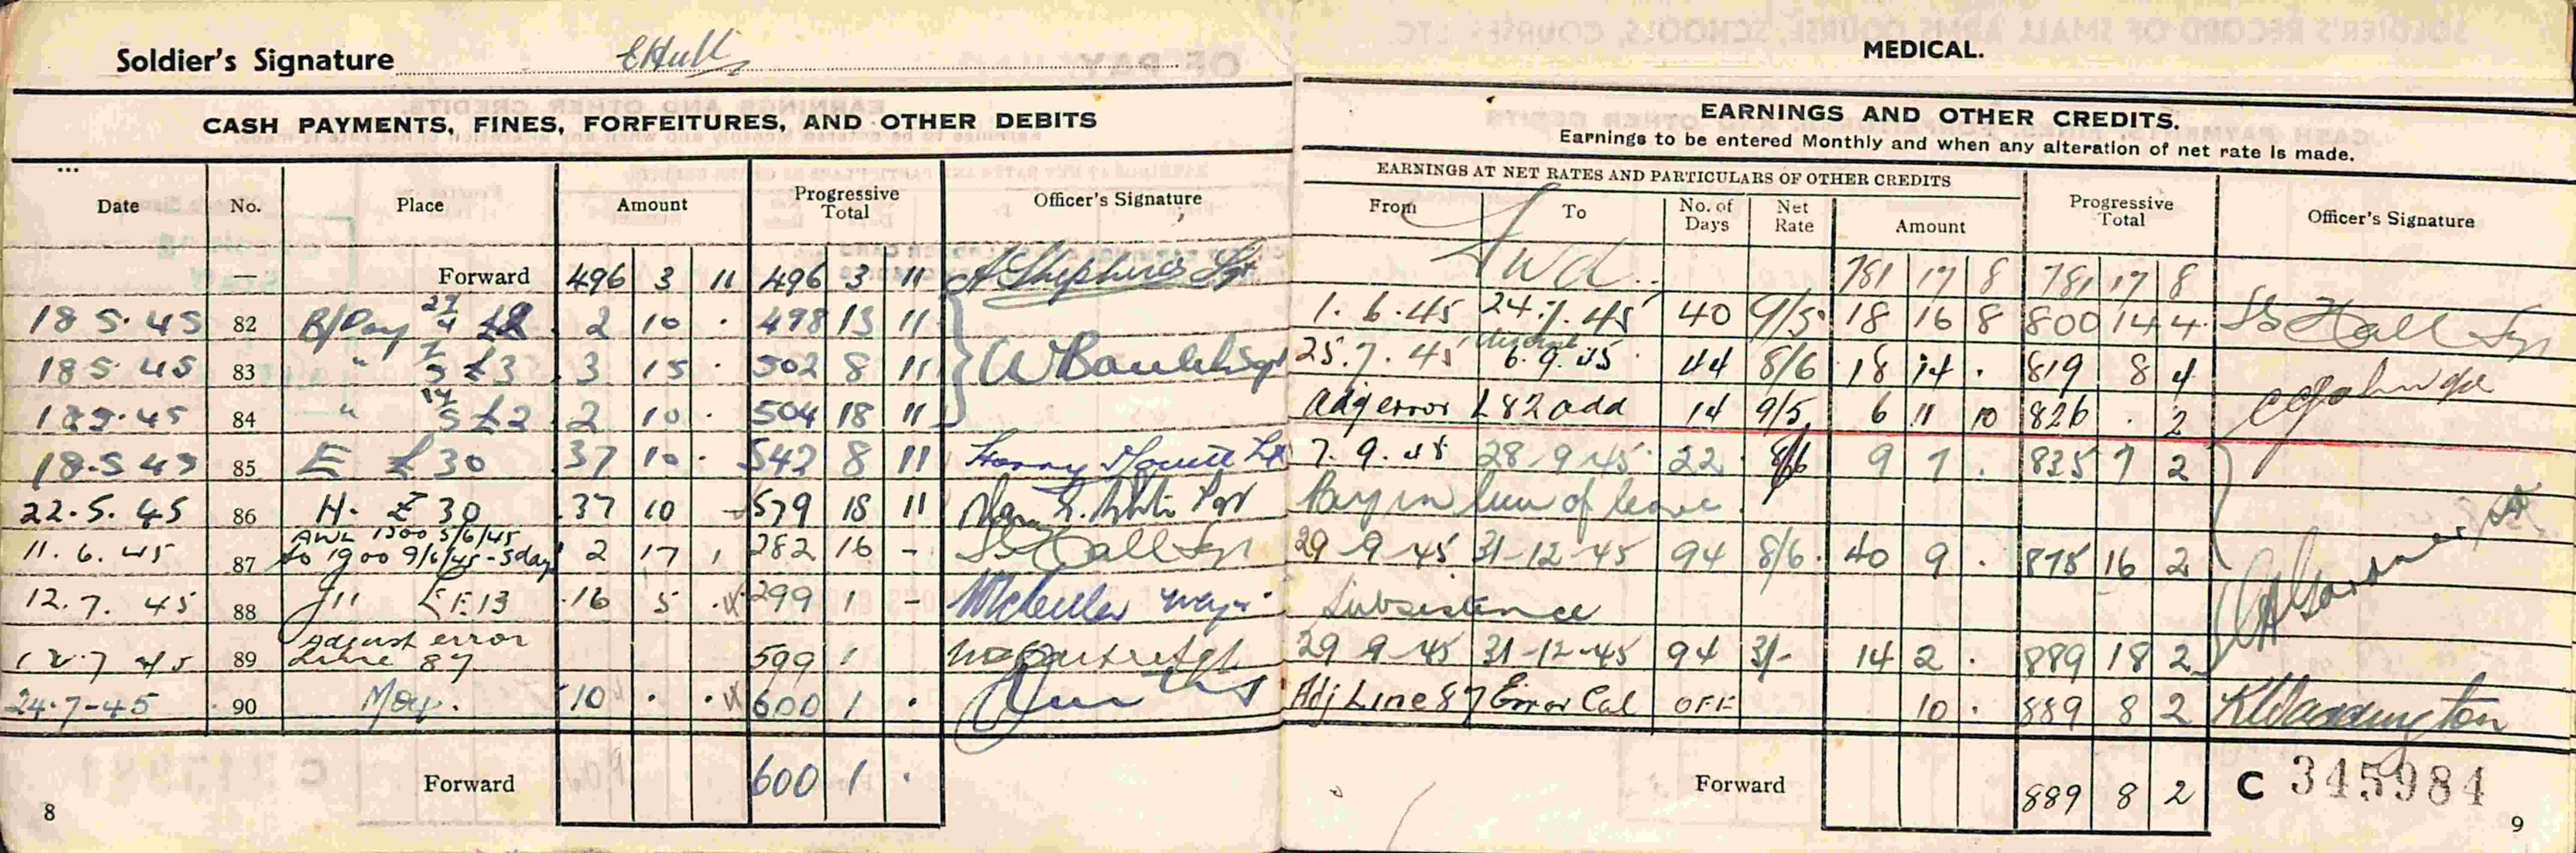 Soldier's Signature EHull
CASH PAYMENTS, FINES, FORFEITURES, AND OTHER DEBITS
Date No. Place Amount Progressive Total Officer's Signature
— Forward 496 3 11 496 3 11 A Shepherd Sgt
18 5. 45 82 B/Pay 27/4 £2 2 10 . 498 13 11
18 5. 45 83 " 7/5 £3 3 15 . 502 8 11
18 5. 45 84 " 14/5 £2 2 10 . 504 18 11
18.5 45 85 E £30 37 10 . 542 8 11 Harry
22.5. 45 86 H. £30 37 10 - 579 18 11
11. 6. 45 87 AWL 1300 5/6/45 to 1900 9/6/45 - 5 days 2 17 1 282 16 - Hall
12. 7. 45 88 £E13 16 5 . 299 1 -
12 7 45 89 Adjust error Line 87 599 1
24.7-45 90 May. 10 . . 600 1 .
Forward 600 1 .
8
MEDICAL.
EARNINGS AND OTHER CREDITS.
Earnings to be entered Monthly and when any alteration of net rate is made.
EARNINGS AT NET RATES AND PARTICULARS OF OTHER CREDITS
From To No. of Days Net Rate Amount Progressive Total Officer's Signature
Fwd.. 781 17 8 781 17 8
1. 6. 45 24.7. 45 40 9/5 18 16 8 800 14 4 Hall
25. 7. 45 6. 9. 45 44 8/6 18 14 . 819 8 4
Adj error L 82 add 14 9/5 6 11 10 826 . 2
7. 9. 45 28-9-45 22 8/6 9 7 . 835 7 2
Pay in lieu of leave
29-9-45 31-12-45 94 8/6 40 9 . 875 16 2
Subsistence
29 9-45 31-12-45 94 3/- 14 2 . 889 18 2
Adj Line 87 Error Cal OFF 10 . 889 8 2
Forward 889 8 2
C 345984
9